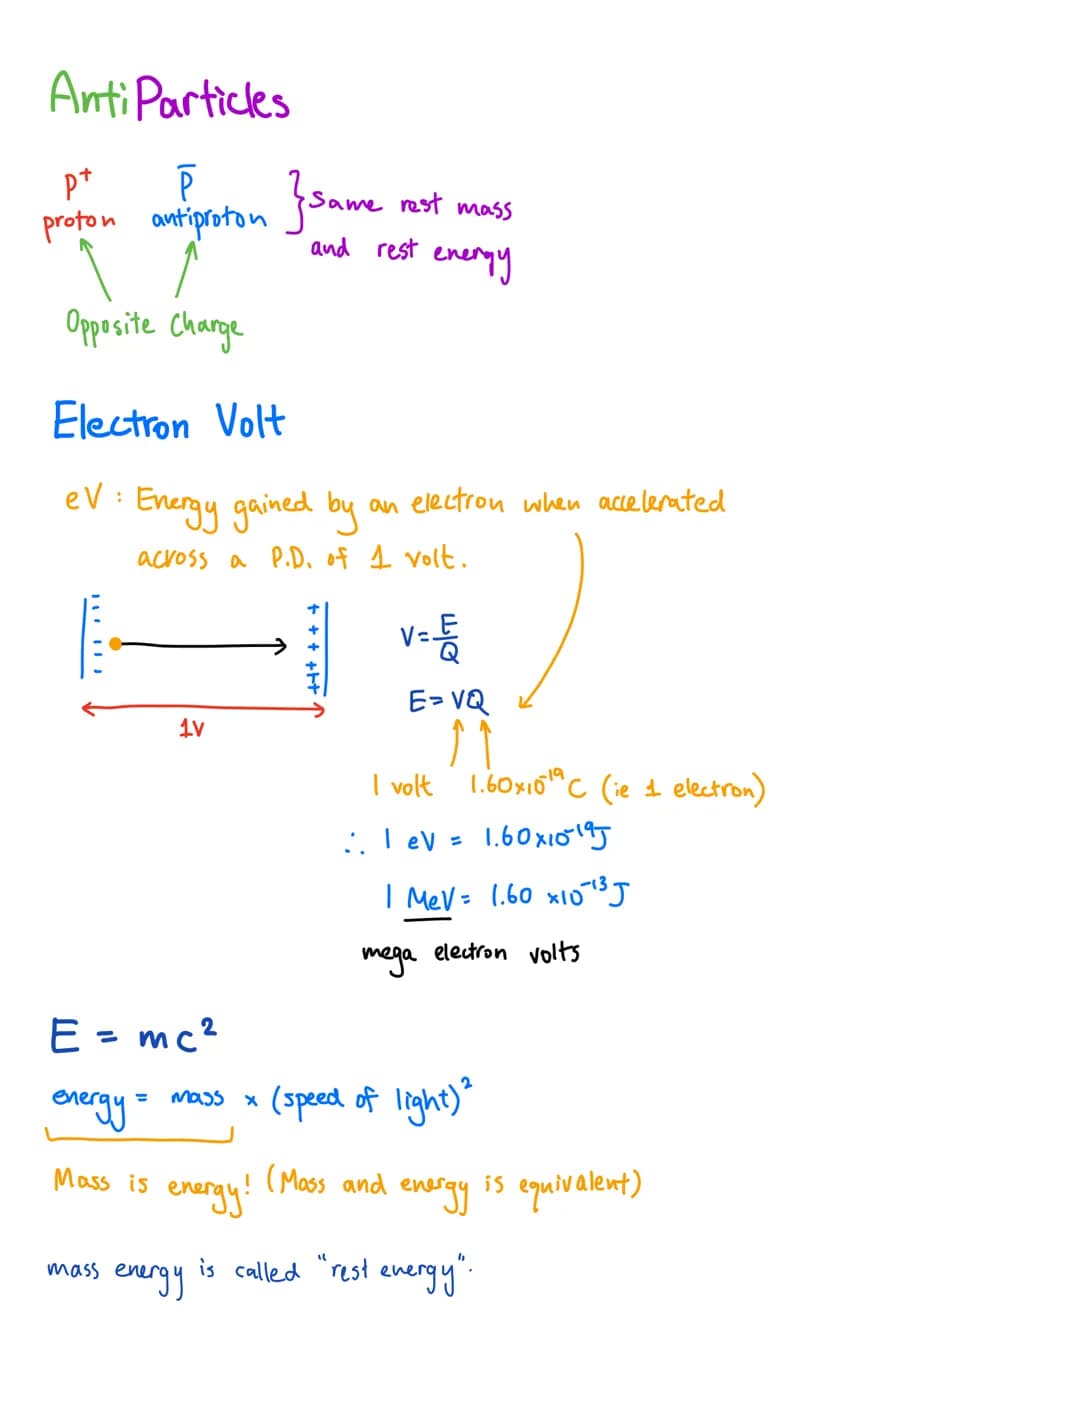 AntiParticles
p⁺ p̅ } Same rest mass
proton antiproton
and rest energy
Opposite Charge
Electron Volt
eV : Energy gained by an electron when accelerated
across a P.D. of 1 volt.
- - - - - -
+ + + + + +
V = E/Q
E = VQ
1V
1 volt 1.60×10⁻¹⁹ C (ie 1 electron)
∴ 1 eV = 1.60×10⁻¹⁹J
1 MeV = 1.60 ×10⁻¹³J
mega electron volts
E = mc²
energy = mass × (speed of light)²
Mass is energy! (Mass and energy is equivalent)
mass energy is called "rest energy".